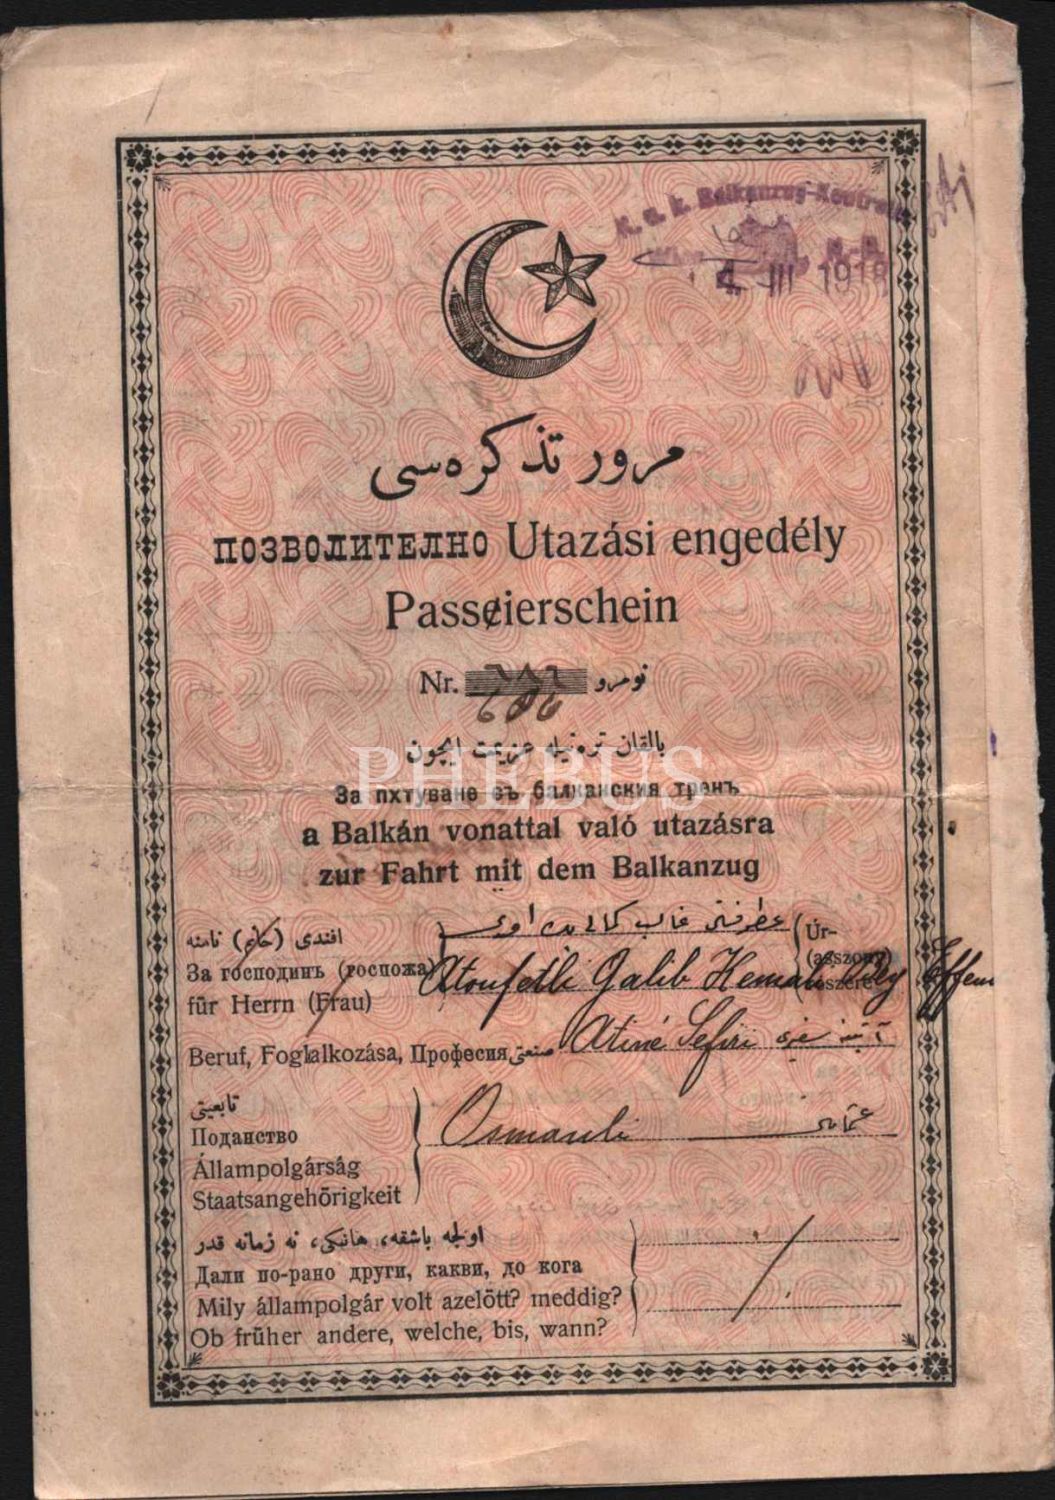 K. u. k. Balkanzug-Kontrolle
4. III 1918
مرور تذكره‌سی
ПОЗВОЛИТЕЛНО Utazási engedély
Passeierschein
Nr. نومرو
بالقان ترنيله عزيمت ايچون
PHEBUS
За пхтуване съ балканския тренъ
a Balkán vonattal való utazásra
zur Fahrt mit dem Balkanzug
افندی (خانم) نامنه
За господинъ (госпожа)
für Herrn (Frau)
Úr-
(asszony)
Atoufetli Galib Kemali Bey Effen
Beruf, Foglalkozása, Професия صنعتی Atiné Sefiri
تابعيتی
Поданство
Állampolgárság
Staatsangehörigkeit
Osmanli
اولجه باشقه، هانكی، نه زمانه قدر
Дали по-рано други, какви, до кога
Mily állampolgár volt azelött? meddig?
Ob früher andere, welche, bis, wann?